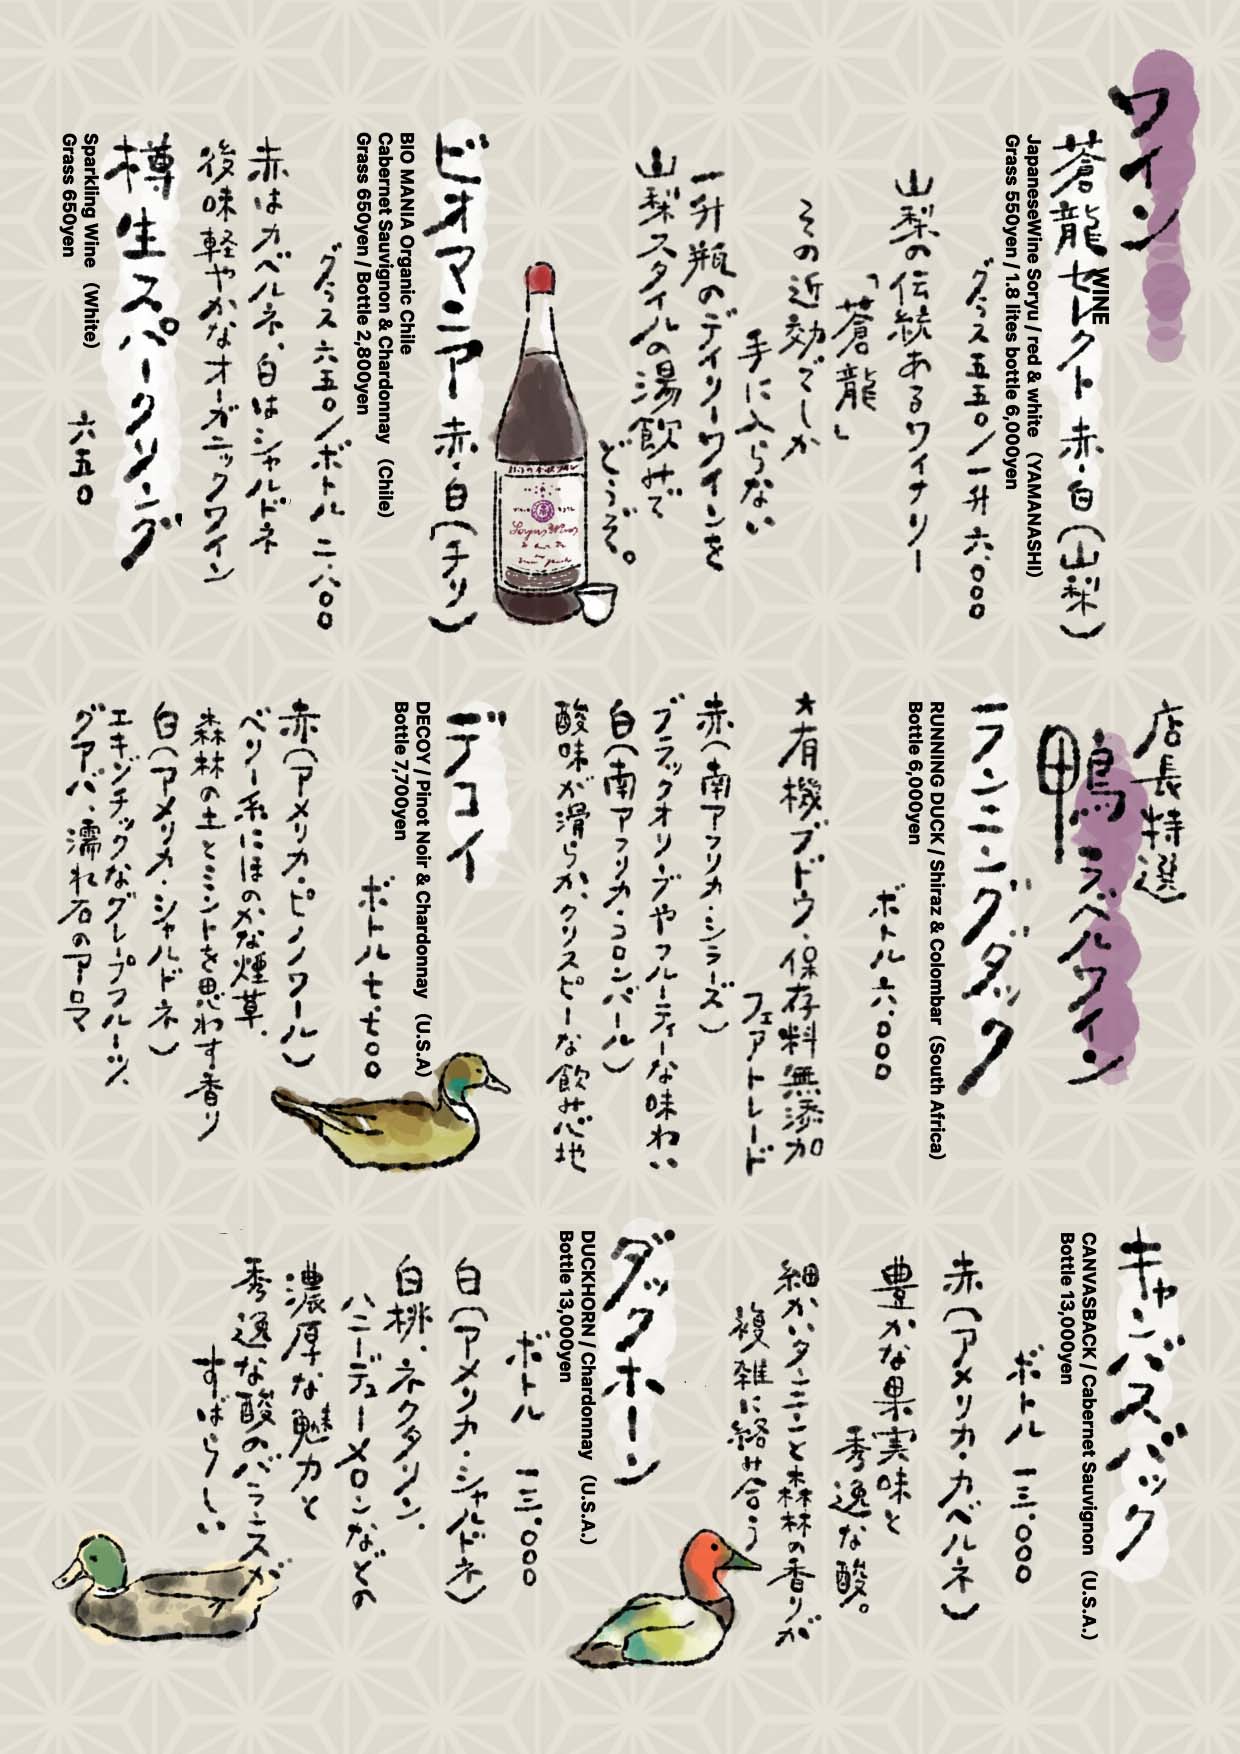 ワイン
WINE
蒼龍セレクト 赤・白(山梨)
JapaneseWine Soryu / red & white (YAMANASHI)
Grass 550yen / 1.8 lites bottle 6,000yen
グラス 五五〇/一升 六、〇〇〇
山梨の伝統あるワイナリー
「蒼龍」
その近効でしか
手に入らない
一升瓶のデイリーワインを
山梨スタイルの湯飲みで
どうぞ。
ビオマニア 赤・白(チリ)
BIO MANIA Organic Chile
Cabernet Sauvignon & Chardonnay (Chile)
Grass 650yen / Bottle 2,800yen
グラス 六五〇/ボトル 二、八〇〇
赤はカベルネ、白はシャルドネ
後味軽やかなオーガニックワイン
樽生スパークリング
Sparkling Wine (White)
Grass 650yen
六五〇
店長特選
鴨ラベルワイン
ランニングダック
RUNNING DUCK / Shiraz & Colombar (South Africa)
Bottle 6,000yen
ボトル 六、〇〇〇
★有機ブドウ、保存料無添加
フェアトレード
赤(南アフリカ・シラーズ)
ブラックオリーブやフルーティーな味わい
白(南アフリカ・コロンバール)
酸味が滑らか、クリスピーな飲み心地
デコイ
DECOY / Pinot Noir & Chardonnay (U.S.A)
Bottle 7,700yen
ボトル 七、七〇〇
赤(アメリカ・ピノノワール)
ベリー系にほのかな煙草、
森林の土とミントを思わす香り
白(アメリカ・シャルドネ)
エキゾチックなグレープフルーツ、
グアバ、濡れ石のアロマ
キャンバスバック
CANVASBACK / Cabernet Sauvignon (U.S.A.)
Bottle 13,000yen
ボトル 一三、〇〇〇
赤(アメリカ・カベルネ)
豊かな果実味と
秀逸な酸。
細かいタンニンと森林の香りが
複雑に絡み合う
ダックホーン
DUCKHORN / Chardonnay (U.S.A.)
Bottle 13,000yen
ボトル 一三、〇〇〇
白(アメリカ・シャルドネ)
白桃、ネクタリン、
ハニーデューメロンなどの
濃厚な魅力と
秀逸な酸のバランスが
すばらしい